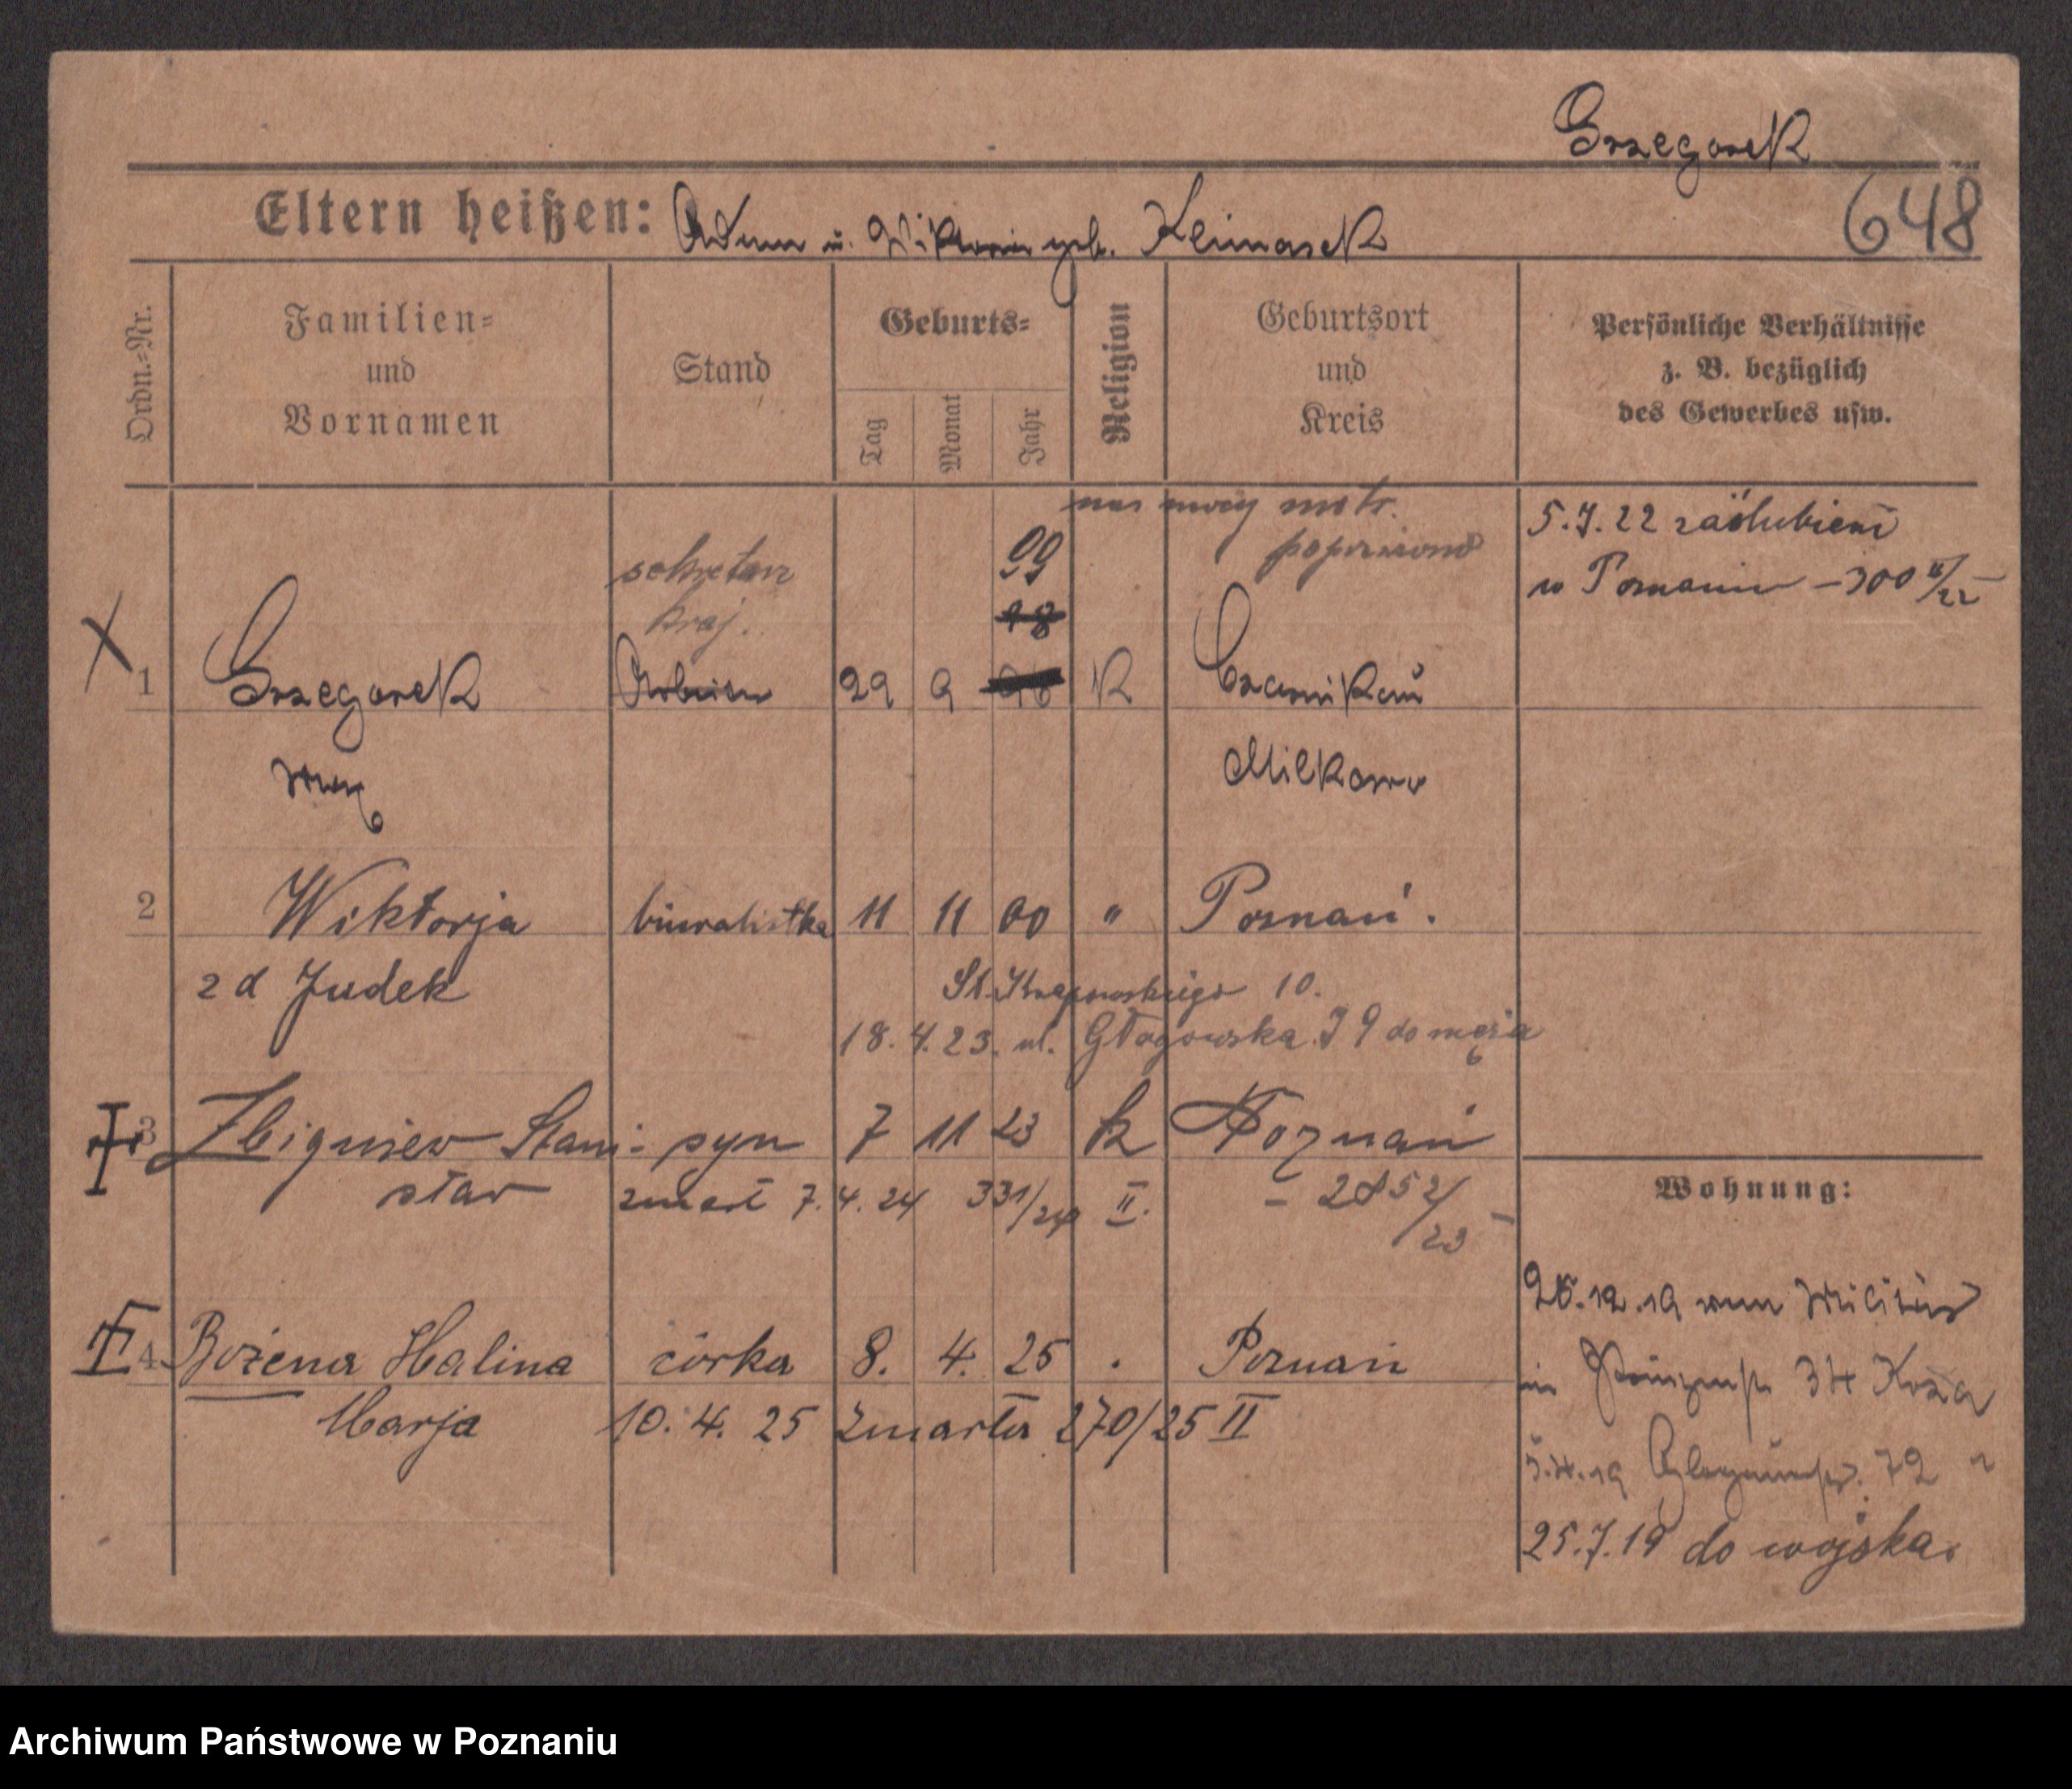 Grzegorek
648
Eltern heißen: Adam u. Wiktoria geb. Klimasek
Ordn.-Nr.
Familien-
und
Vornamen
Stand
Geburts-
Tag
Monat
Jahr
Religion
Geburtsort
und
Kreis
Persönliche Verhältnisse
z. B. bezüglich
des Gewerbes usw.
poprawiono
5.7.22 zaślubieni
w Poznaniu – 300 II/22 –
sekretarz
kraj.
99
18
1 Grzegorek Arbeiter 29 9 K Czarnikau
Milkowo
2 Wiktorja biuralistka 11 11 00 " Poznań.
z d Judek
10.
18. 4. 23. ul. Głogowska 79 do męża
3 Zbigniew Stani- syn 7 11 23 k Poznań
sław zmarł 7. 4. 24 331/24 II. – 2852/23 –
Wohnung:
4 Bożena Halina córka 8. 4. 25 . Poznań
Marja 10. 4. 25 zmarła 270/25 II
26.12.19 vom Militär
in 34 Koza
5.4.19 72
25.7.19 do wojska.
Archiwum Państwowe w Poznaniu